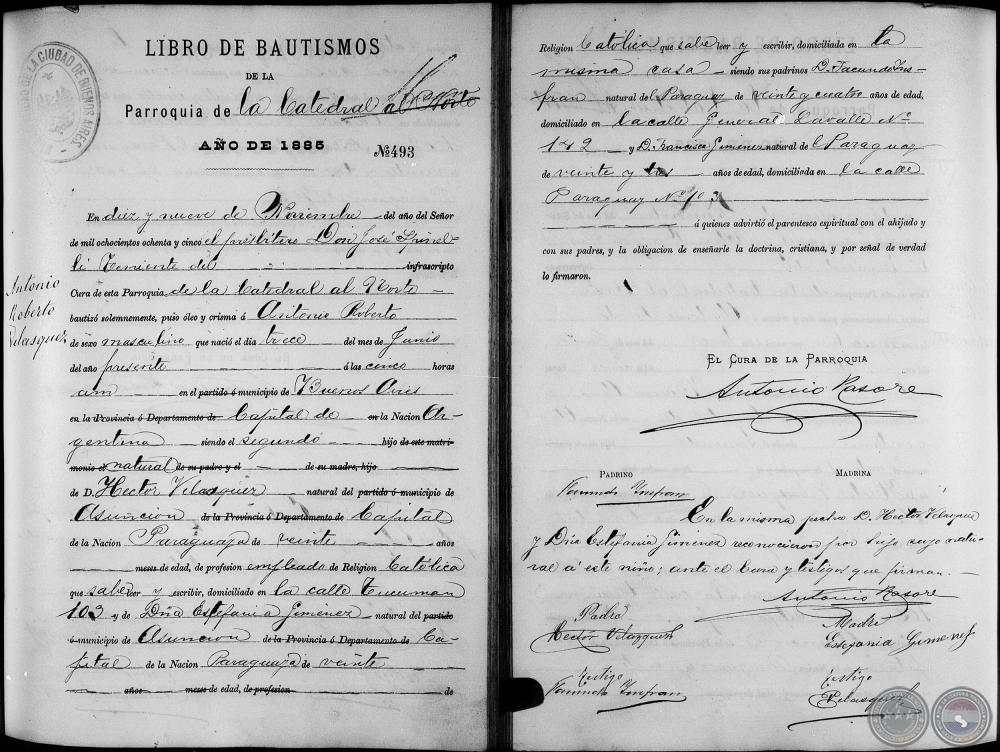 LIBRO DE BAUTISMOS
DE LA
Parroquia de la Catedral al Norte
AÑO DE 1885 Nº 493
DE LA CIUDAD DE BUENOS AIRES
Antonio
Roberto
Velasquez
En diez y nueve de Noviembre del año del Señor
de mil ochocientos ochenta y cinco el presbítero Don José Spinel-
li Teniente del infrascripto
Cura de esta Parroquia de la Catedral al Norte
bautizó solemnemente, puso óleo y crisma á Antonio Roberto
de sexo masculino que nació el dia trece del mes de Junio
del año presente á las cinco horas
am en el partido ó municipio de Buenos Aires
en la Provincia ó Departamento de Capital de en la Nacion Ar-
gentina siendo el segundo hijo de este matri-
monio el natural de su padre y el de su madre, hijo
de D. Hector Velazquez natural del partido ó municipio de
Asuncion de la Provincia ó Departamento de Capital
de la Nacion Paraguaya de veinte años
meses de edad, de profesion empleado de Religion Católica
que sabe leer y escribir, domiciliado en la calle Tucuman
103 y de Dña Estefania Gimenez natural del partido
ó municipio de Asuncion de la Provincia ó Departamento de Ca-
pital de la Nacion Paraguaya de veinte
años meses de edad, de profesion de
Religion Católica que sabe leer y escribir, domiciliada en la
misma casa siendo sus padrinos D. Facundo Ins-
fran natural del Paraguay de veinte y cuatro años de edad,
domiciliado en la calle General Lavalle Nº
142 y D. Francisca Gimenez natural del Paraguay
de veinte y tres años de edad, domiciliada en la calle
Paraguay Nº
á quienes advirtió el parentesco espiritual con el ahijado y
con sus padres, y la obligacion de enseñarle la doctrina, cristiana, y por señal de verdad
lo firmaron.
EL CURA DE LA PARROQUIA
Antonio Rasore
PADRINO MADRINA
Facundo Insfran
En la misma fecha D. Hector Velazquez
y Dña Estefania Gimenez reconocieron por hijo suyo natu-
ral á este niño; ante el Cura y testigos que firman.
Antonio Rasore
Padre Madre
Hector Velazquez Estefania Gimenez
Testigo Testigo
Facundo Insfran Velasquez